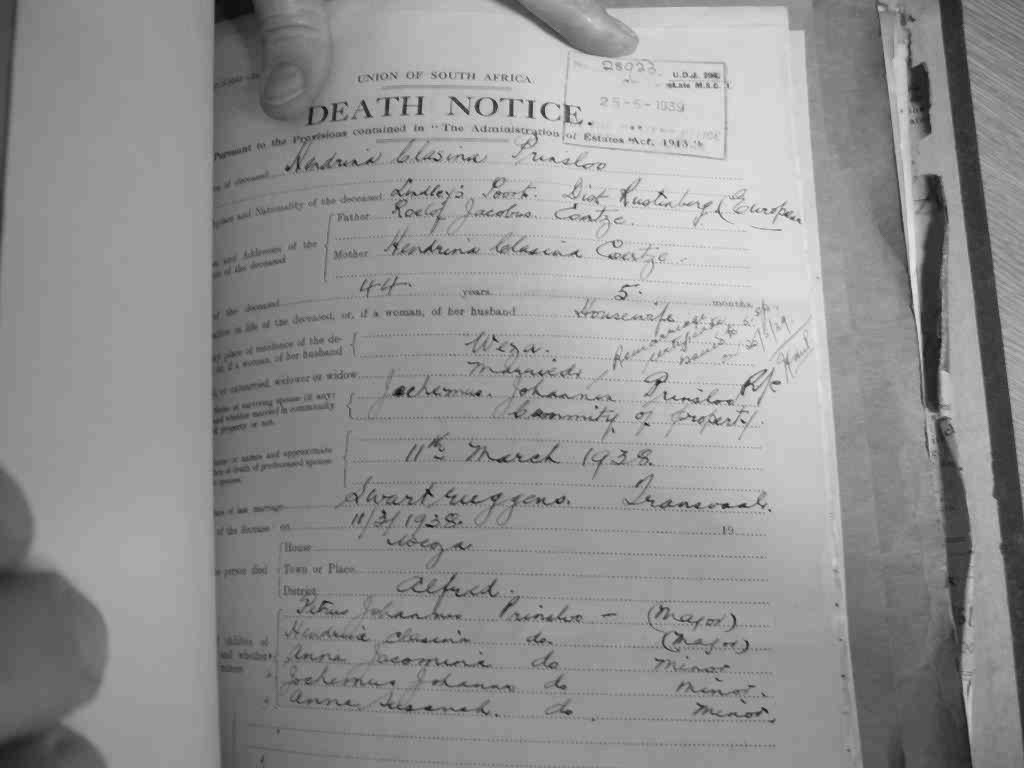 UNION OF SOUTH AFRICA.
28023
U.D.J.
25-5-1939
DEATH NOTICE.
Pursuant to the Provisions contained in "The Administration of Estates Act, 1913."
of deceased Hendrina Clasina Prinsloo
and Nationality of the deceased Lindley's Poort. Dist Rustenberg (European
Father Roelof Jacobus Coetze.
and Addresses of the
of the deceased
Mother Hendrina Clasina Coetze.
of the deceased 44 years 5 months.
in life of the deceased, or, if a woman, of her husband Housewife
place of residence of the de-
if a woman, of her husband Weza.
or unmarried, widower or widow Married
Jochemus Johannes Prinsloo
married in community
of property or not. Commity of property.
or names and approximate
of death of predeceased spouse
11th March 1938.
of last marriage Swartruggens. Transvaal.
of the decease: on 11/3/1938. 19
House Weza
person died Town or Place
District Alfred.
Petrus Johannes Prinsloo - (Major)
children of Hendrina Classina do. (Major)
and whether Anna Jacomina do minor
Jochemus Johannes do minor.
Anna Susanah. do. minor.